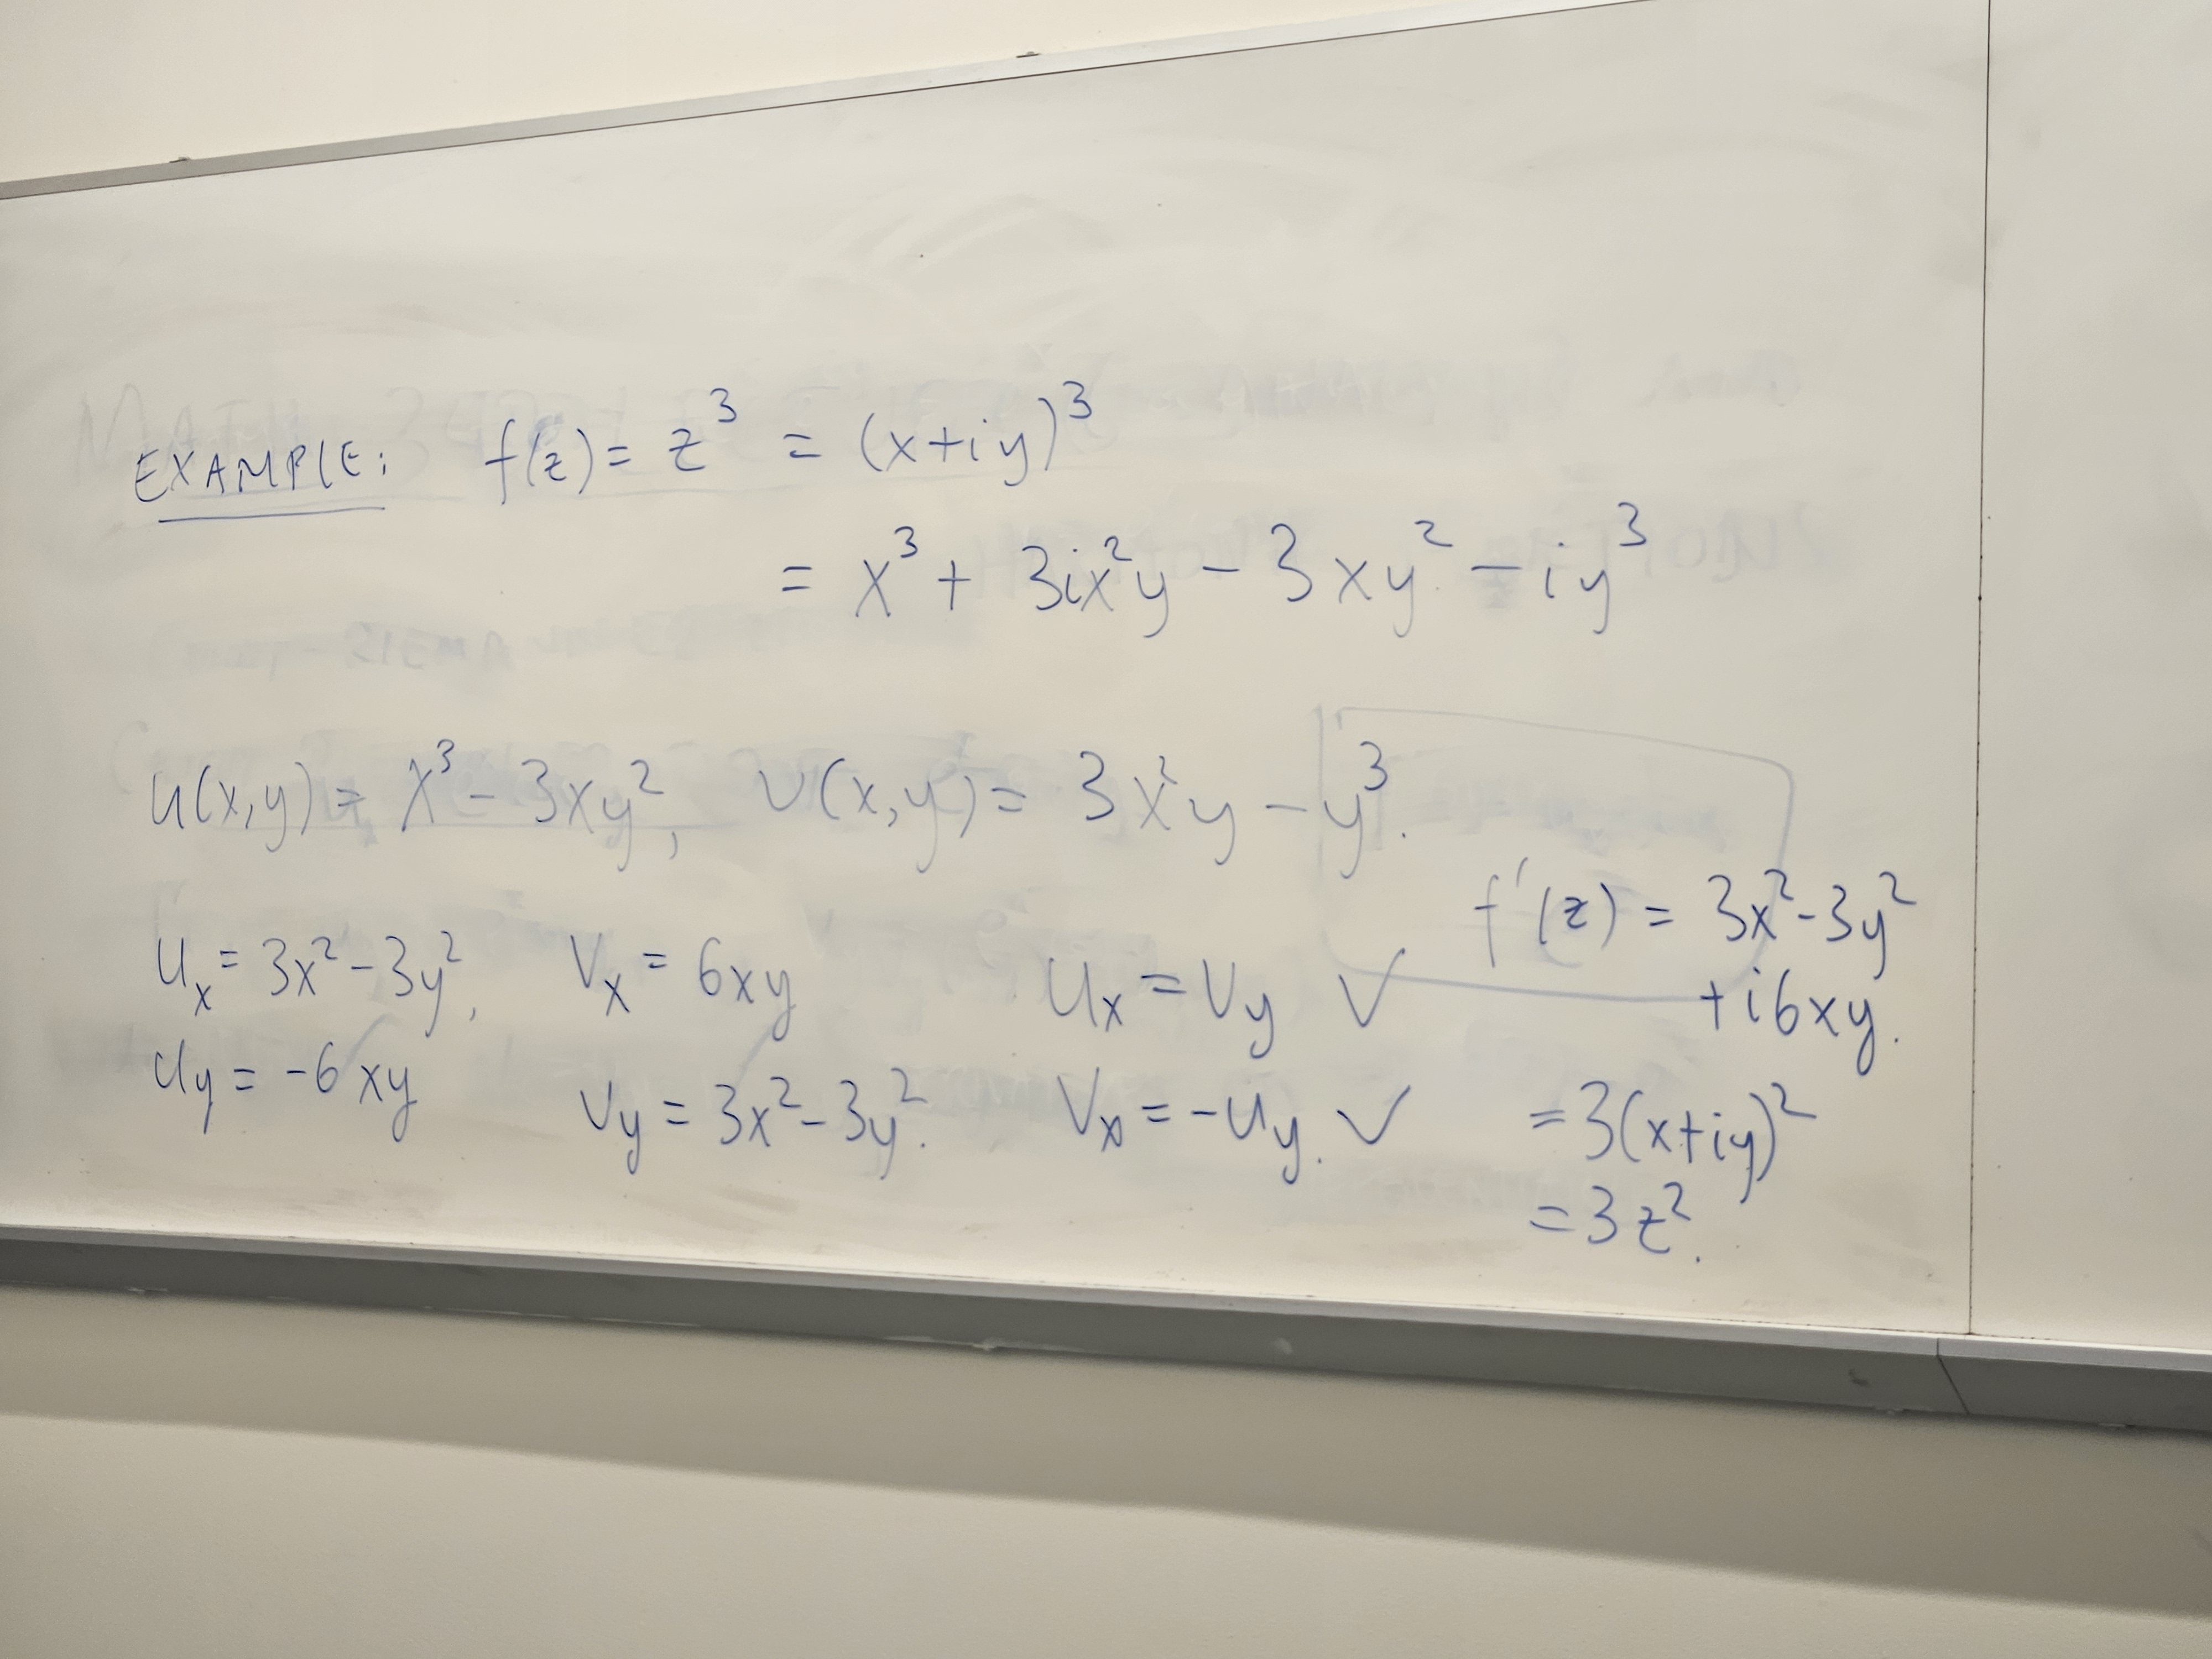 EXAMPLE: f(z) = z³ = (x+iy)³
= x³ + 3ix²y − 3xy² − iy³
u(x,y) = x³ − 3xy², v(x,y) = 3x²y − y³.
u_x = 3x² − 3y², v_x = 6xy u_x = v_y ✓
u_y = −6xy v_y = 3x² − 3y². v_x = −u_y. ✓
f'(z) = 3x² − 3y²
+ i6xy.
= 3(x+iy)²
= 3z².